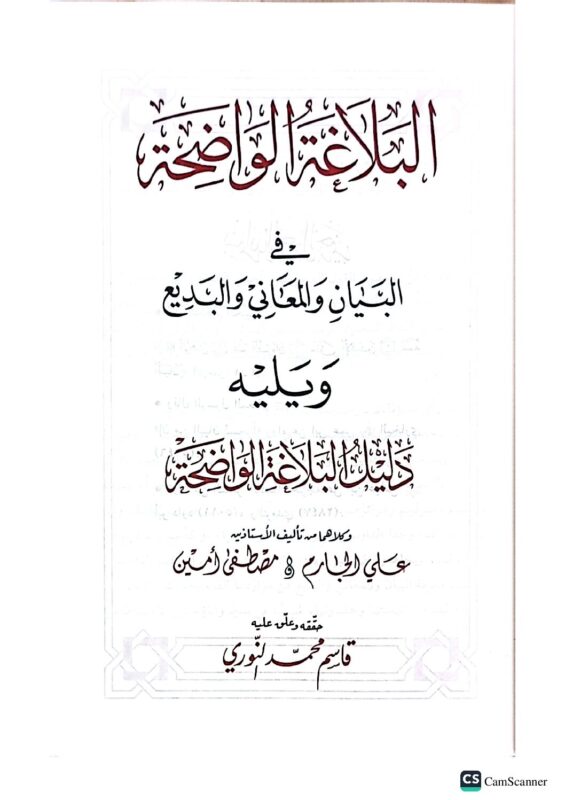 البَلَاغَةُ الوَاضِحَة
في
البَيَانِ وَالمَعَانِي وَالبَدِيْع
وَيَلِيْه
دَلِيْلُ البَلَاغَةِ الوَاضِحَةْ
وكلاهما من تأليف الأستاذين
علي الجارم و مصطفى أمين
حقّقه وعلّق عليه
قاسم محمّد النّوري
CS CamScanner